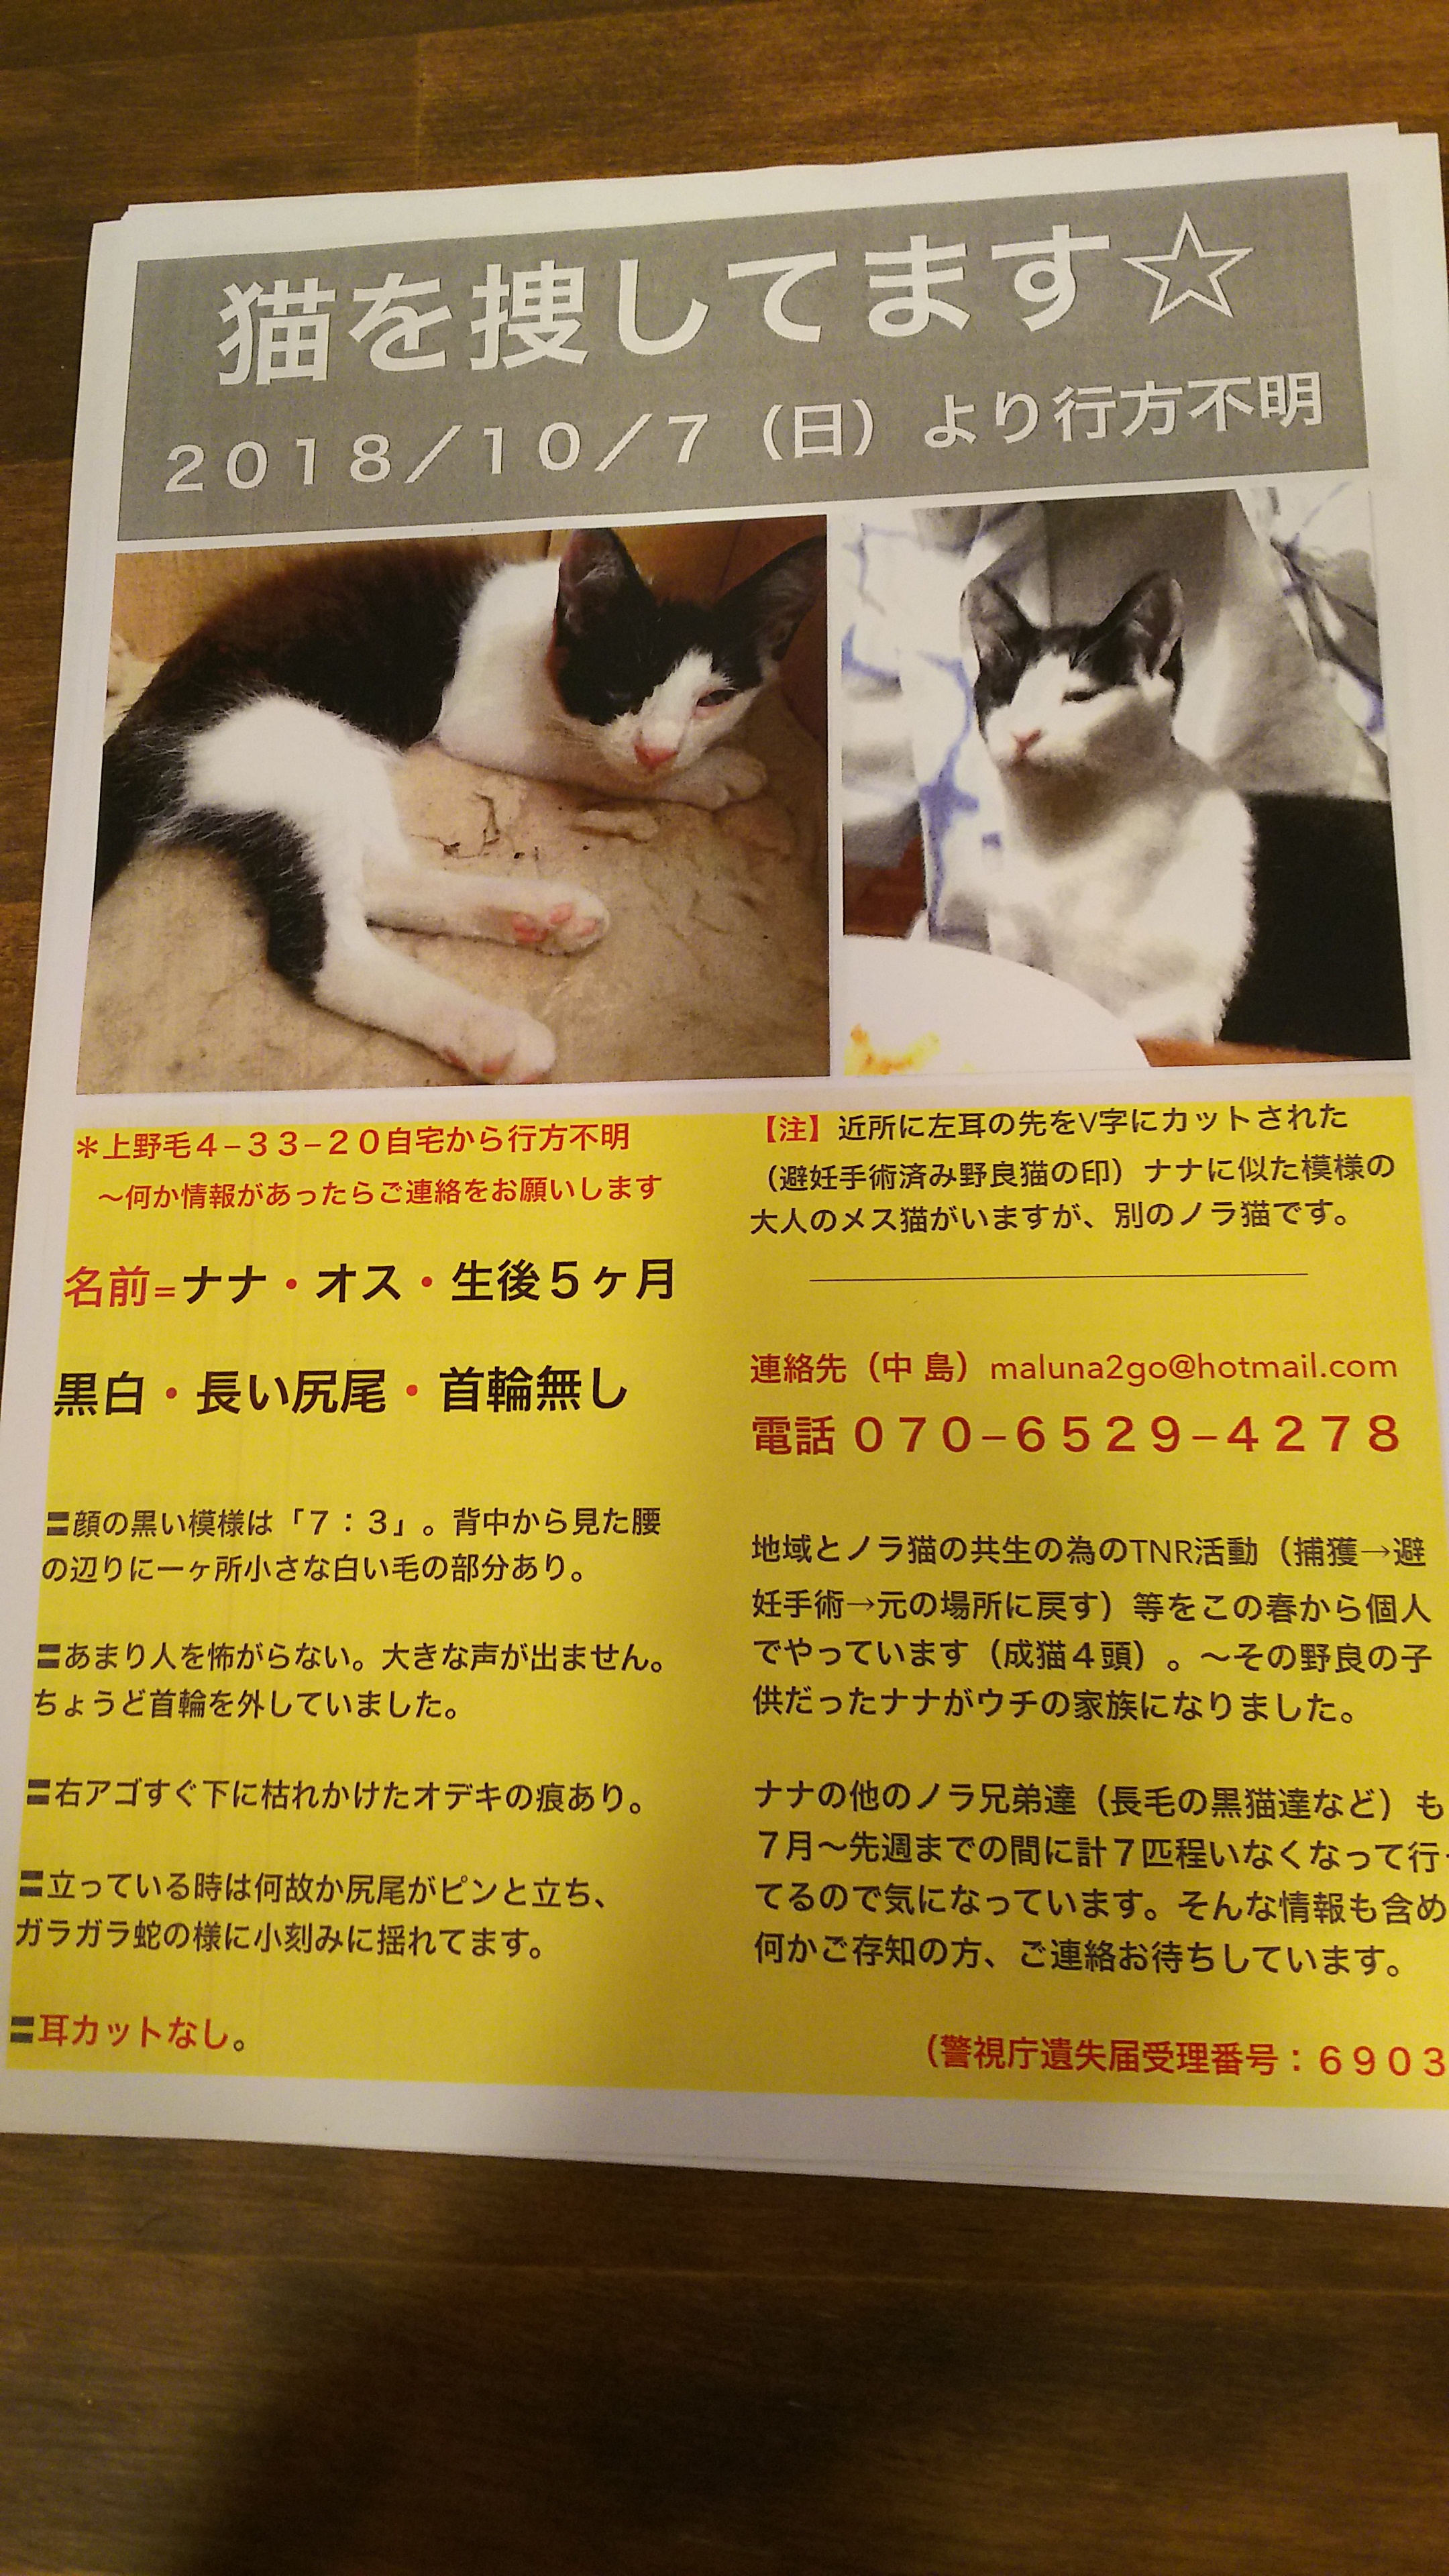 猫を捜してます☆
2018／10／7（日）より行方不明
＊上野毛4−33−20自宅から行方不明
〜何か情報があったらご連絡をお願いします
名前=ナナ・オス・生後5ヶ月
黒白・長い尻尾・首輪無し
〓顔の黒い模様は「7：3」。背中から見た腰
の辺りに一ヶ所小さな白い毛の部分あり。
〓あまり人を怖がらない。大きな声が出ません。
ちょうど首輪を外していました。
〓右アゴすぐ下に枯れかけたオデキの痕あり。
〓立っている時は何故か尻尾がピンと立ち、
ガラガラ蛇の様に小刻みに揺れてます。
〓耳カットなし。
【注】近所に左耳の先をV字にカットされた
（避妊手術済み野良猫の印）ナナに似た模様の
大人のメス猫がいますが、別のノラ猫です。
連絡先（中 島）maluna2go@hotmail.com
電話 070−6529−4278
地域とノラ猫の共生の為のTNR活動（捕獲→避
妊手術→元の場所に戻す）等をこの春から個人
でやっています（成猫4頭）。〜その野良の子
供だったナナがウチの家族になりました。
ナナの他のノラ兄弟達（長毛の黒猫達など）も
7月〜先週までの間に計7匹程いなくなって行っ
てるので気になっています。そんな情報も含め
何かご存知の方、ご連絡お待ちしています。
（警視庁遺失届受理番号：6903